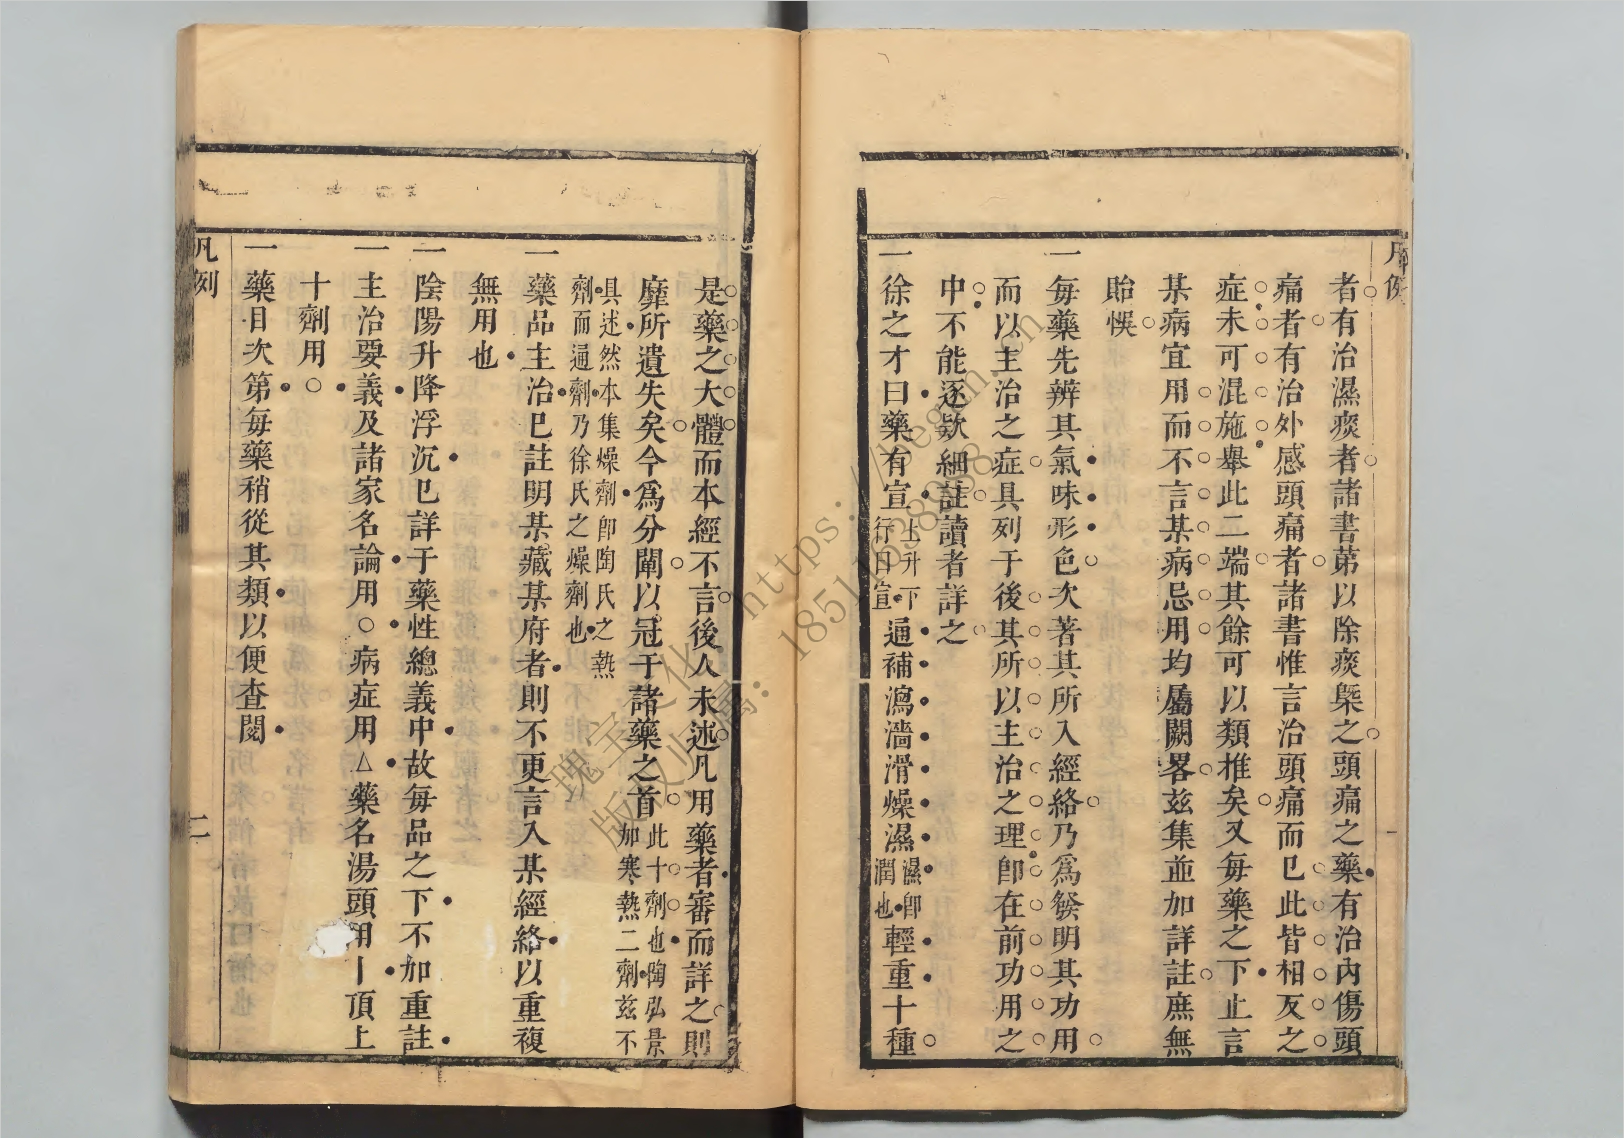 凡例
者有治濕痰者諸書第以除痰槩之頭痛之藥有治內傷頭
痛者有治外感頭痛者諸書惟言治頭痛而已此皆相反之
症未可混施舉此二端其餘可以類推矣又每藥之下止言
某病宜用而不言某病忌用均屬闕畧茲集並加詳註庶無
貽悞
一每藥先辨其氣味形色次著其所入經絡乃爲發明其功用
而以主治之症具列于後其所以主治之理卽在前功用之
中不能逐欵細註讀者詳之
一徐之才曰藥有宣上升下行曰宣通補瀉濇滑燥濕濕卽潤也輕重十種
是藥之大體而本經不言後人未述凡用藥者審而詳之則
靡所遺失矣今爲分闡以冠于諸藥之首此十劑也陶弘景加寒熱二劑茲不
具述然本集燥劑卽陶氏之熱劑而通劑乃徐氏之燥劑也
一藥品主治已註明某藏某府者則不更言入某經絡以重複
無用也
一陰陽升降浮沉已詳于藥性總義中故每品之下不加重註
一主治要義及諸家名論用○病症用△藥名湯頭用丨頂上
十劑用○
一藥目次第每藥稍從其類以便查閱
凡例
二
https://begem.cn
18511638988
瑰宝文化
版权归属：